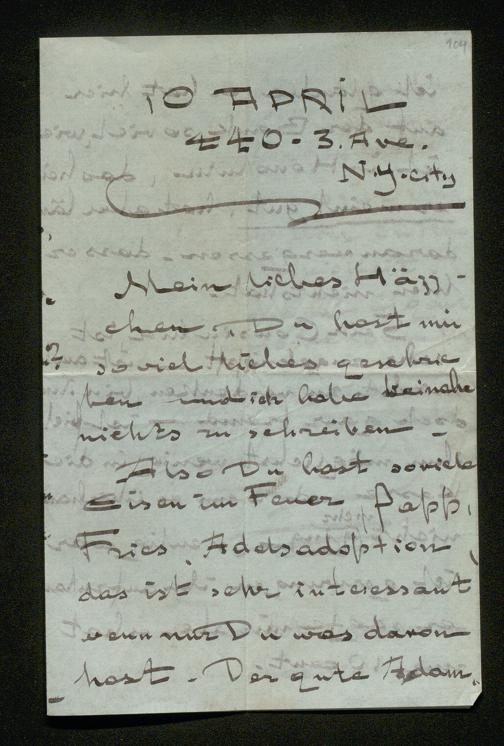 904
10 APRIL
440-3. Ave.
N.y. city
Mein liebes Häzz-
chen. Du hast mir
so viel liebes geschrie
ben und ich habe beinahe
nichts zu schreiben -
Also Du hast soviele
Eisen im Feuer Papp,
Fries, Adelsadoption,
das ist sehr interessant
wenn nur Du was davon
hast - Der gute Adam